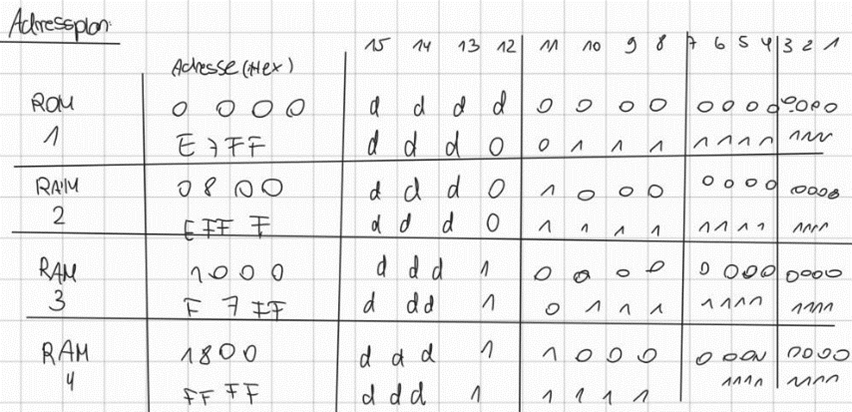 Adressplan:
Adresse (Hex) 15 14 13 12 11 10 9 8 7 6 5 4 3 2 1
ROM 0 0 0 0 d d d d 0 0 0 0 0 0 0 0 0 0 0 0
1 E 7 F F d d d 0 0 1 1 1 1 1 1 1 1 1 1 1
RAM 0 8 0 0 d d d 0 1 0 0 0 0 0 0 0 0 0 0 0
2 E F F F d d d 0 1 1 1 1 1 1 1 1 1 1 1 1
RAM 1 0 0 0 d d d 1 0 0 0 0 0 0 0 0 0 0 0 0
3 F 7 F F d d d 1 0 1 1 1 1 1 1 1 1 1 1 1
RAM 1 8 0 0 d d d 1 1 0 0 0 0 0 0 0 0 0 0 0
4 F F F F d d d 1 1 1 1 1 1 1 1 1 1 1 1 1